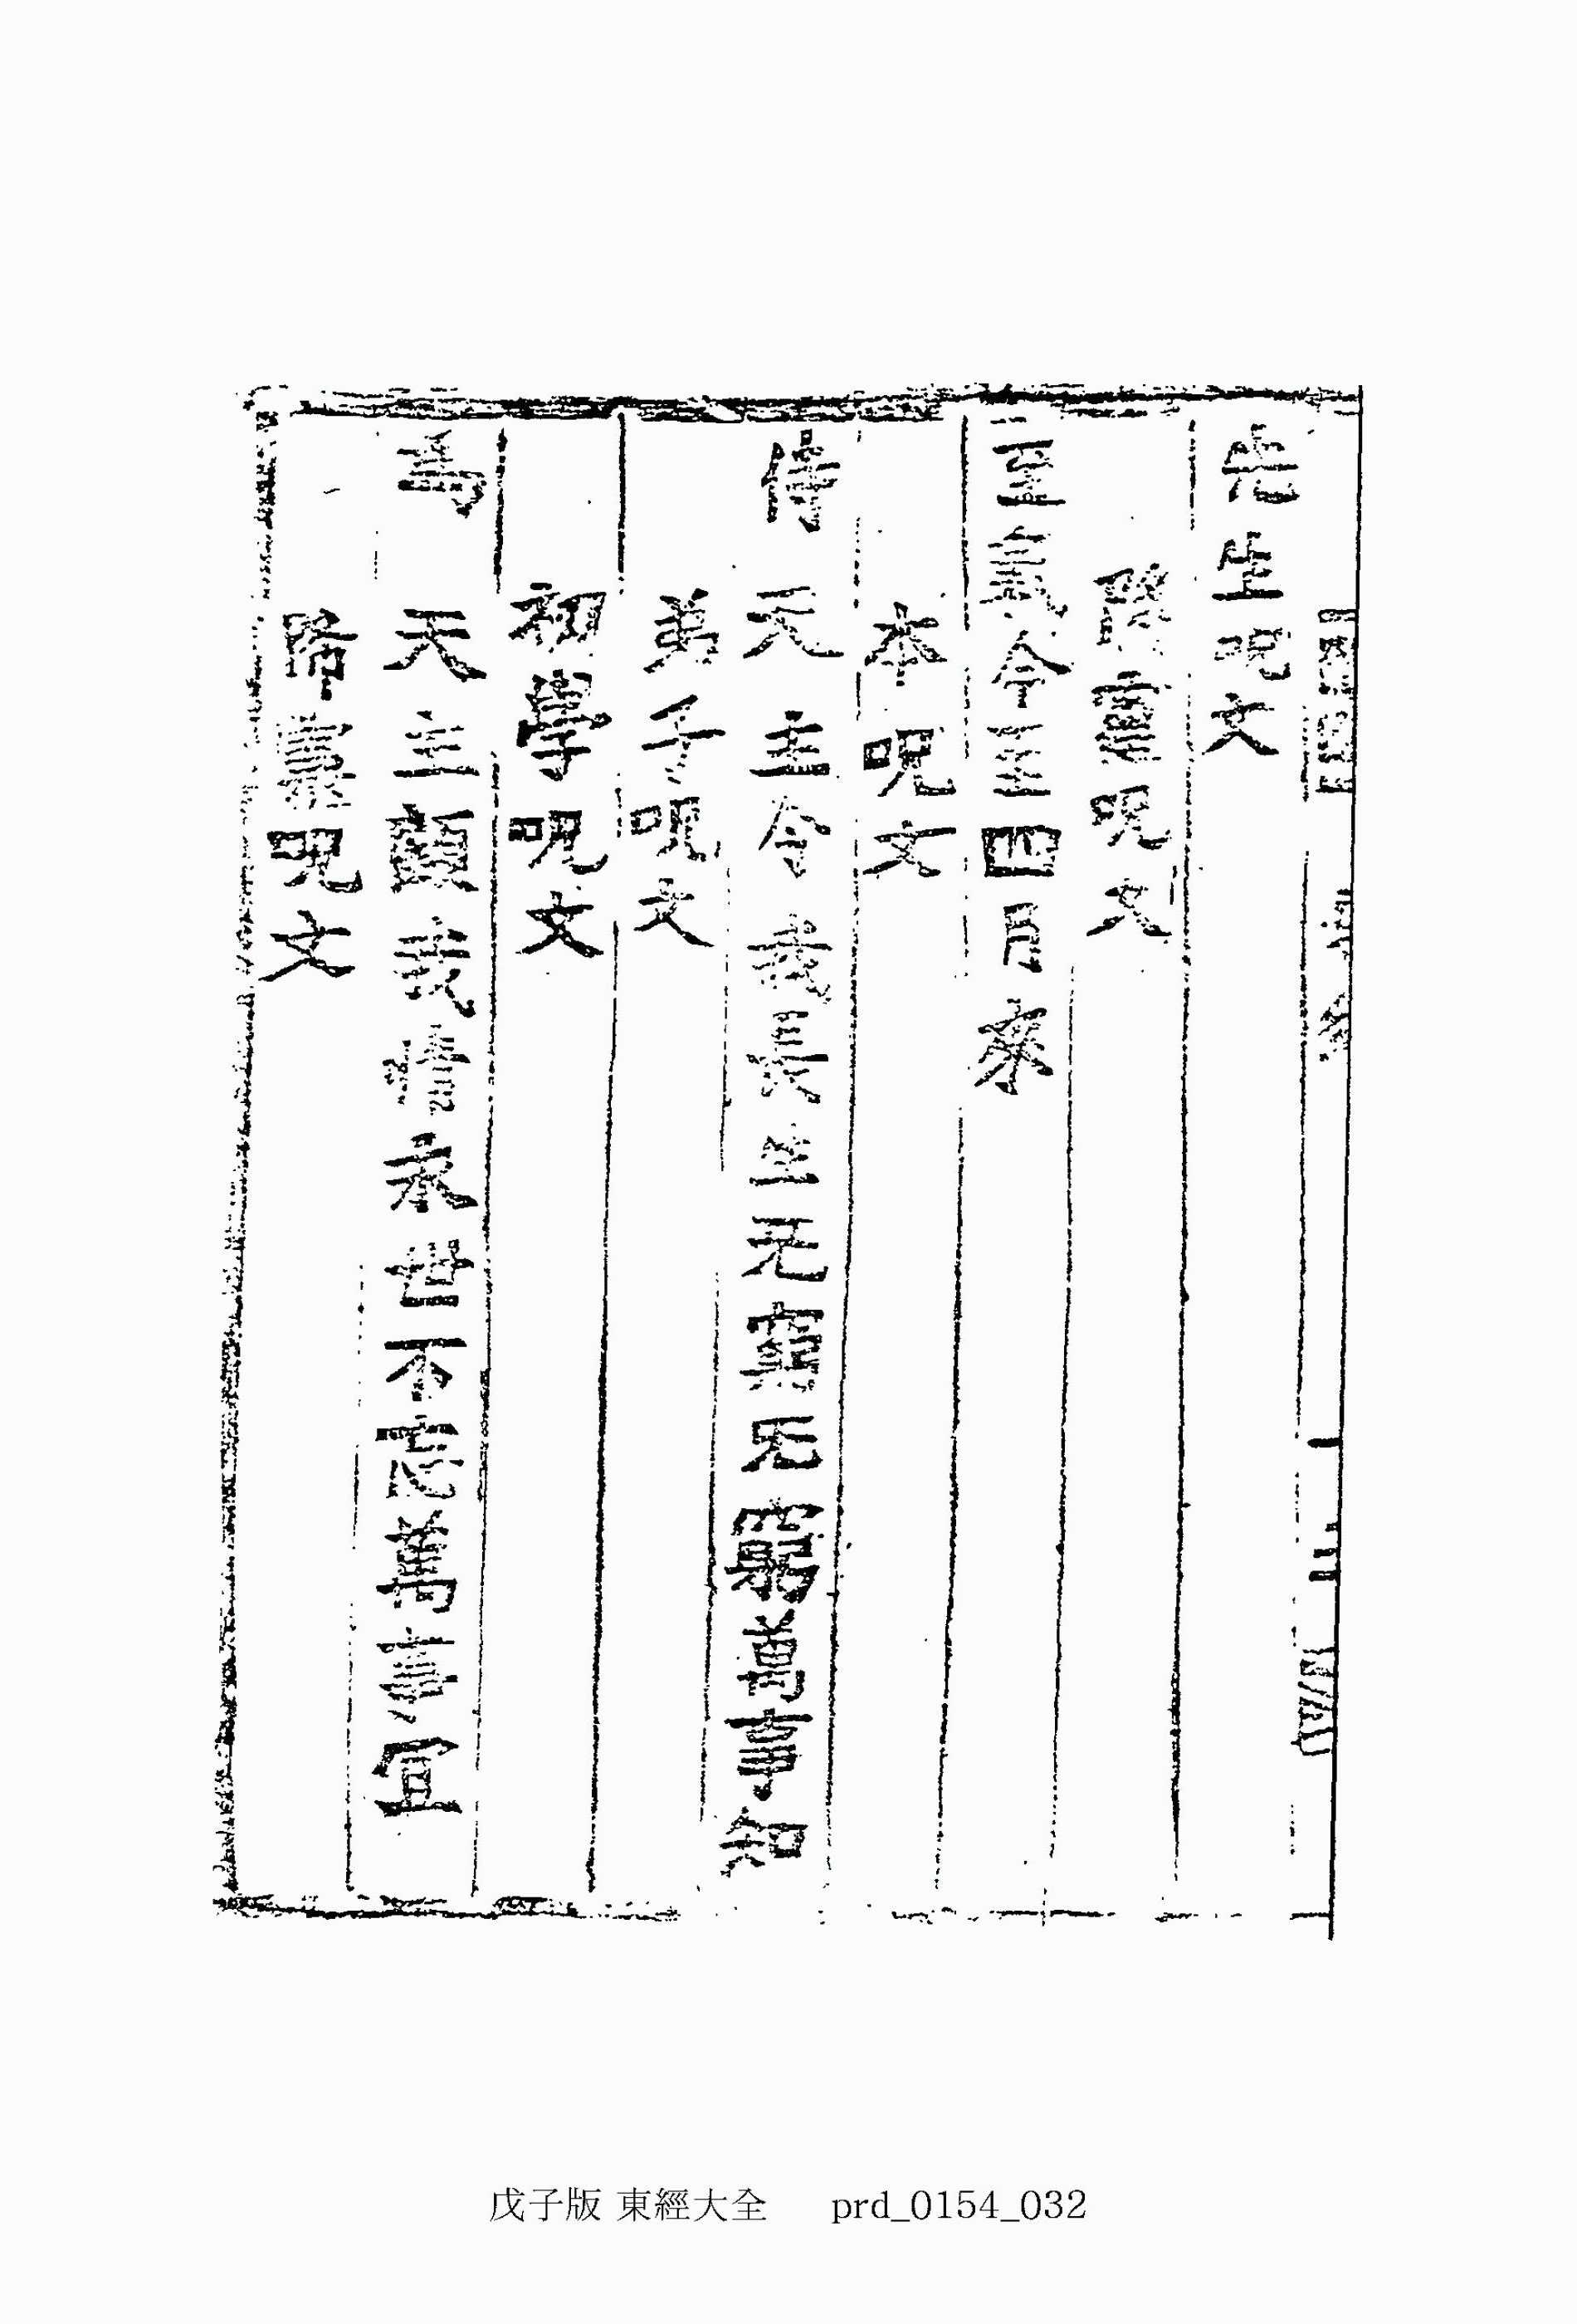 先生呪文
降靈呪文
至氣今至四月來
本呪文
侍 天主令我長生无窮无窮萬事知
弟子呪文
初學呪文
爲 天主顧我情永世不忘萬事宜
降靈呪文
戊子版 東經大全 prd_0154_032